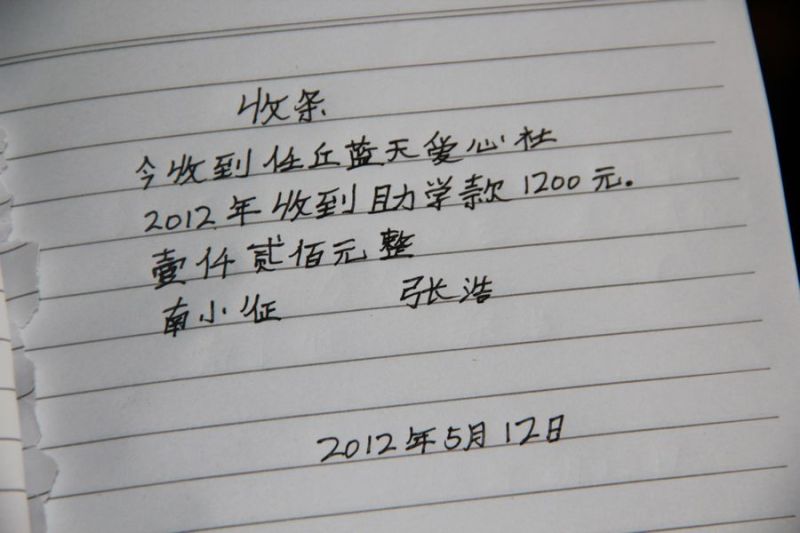 收条
今收到任丘蓝天爱心社
2012年收到助学款1200元.
壹仟贰佰元整
南小征 张浩
2012年5月12日